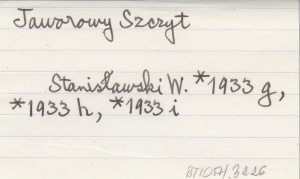 Jaworowy Szczyt
Stanisławski W. *1933 g,
*1933 h, *1933 i